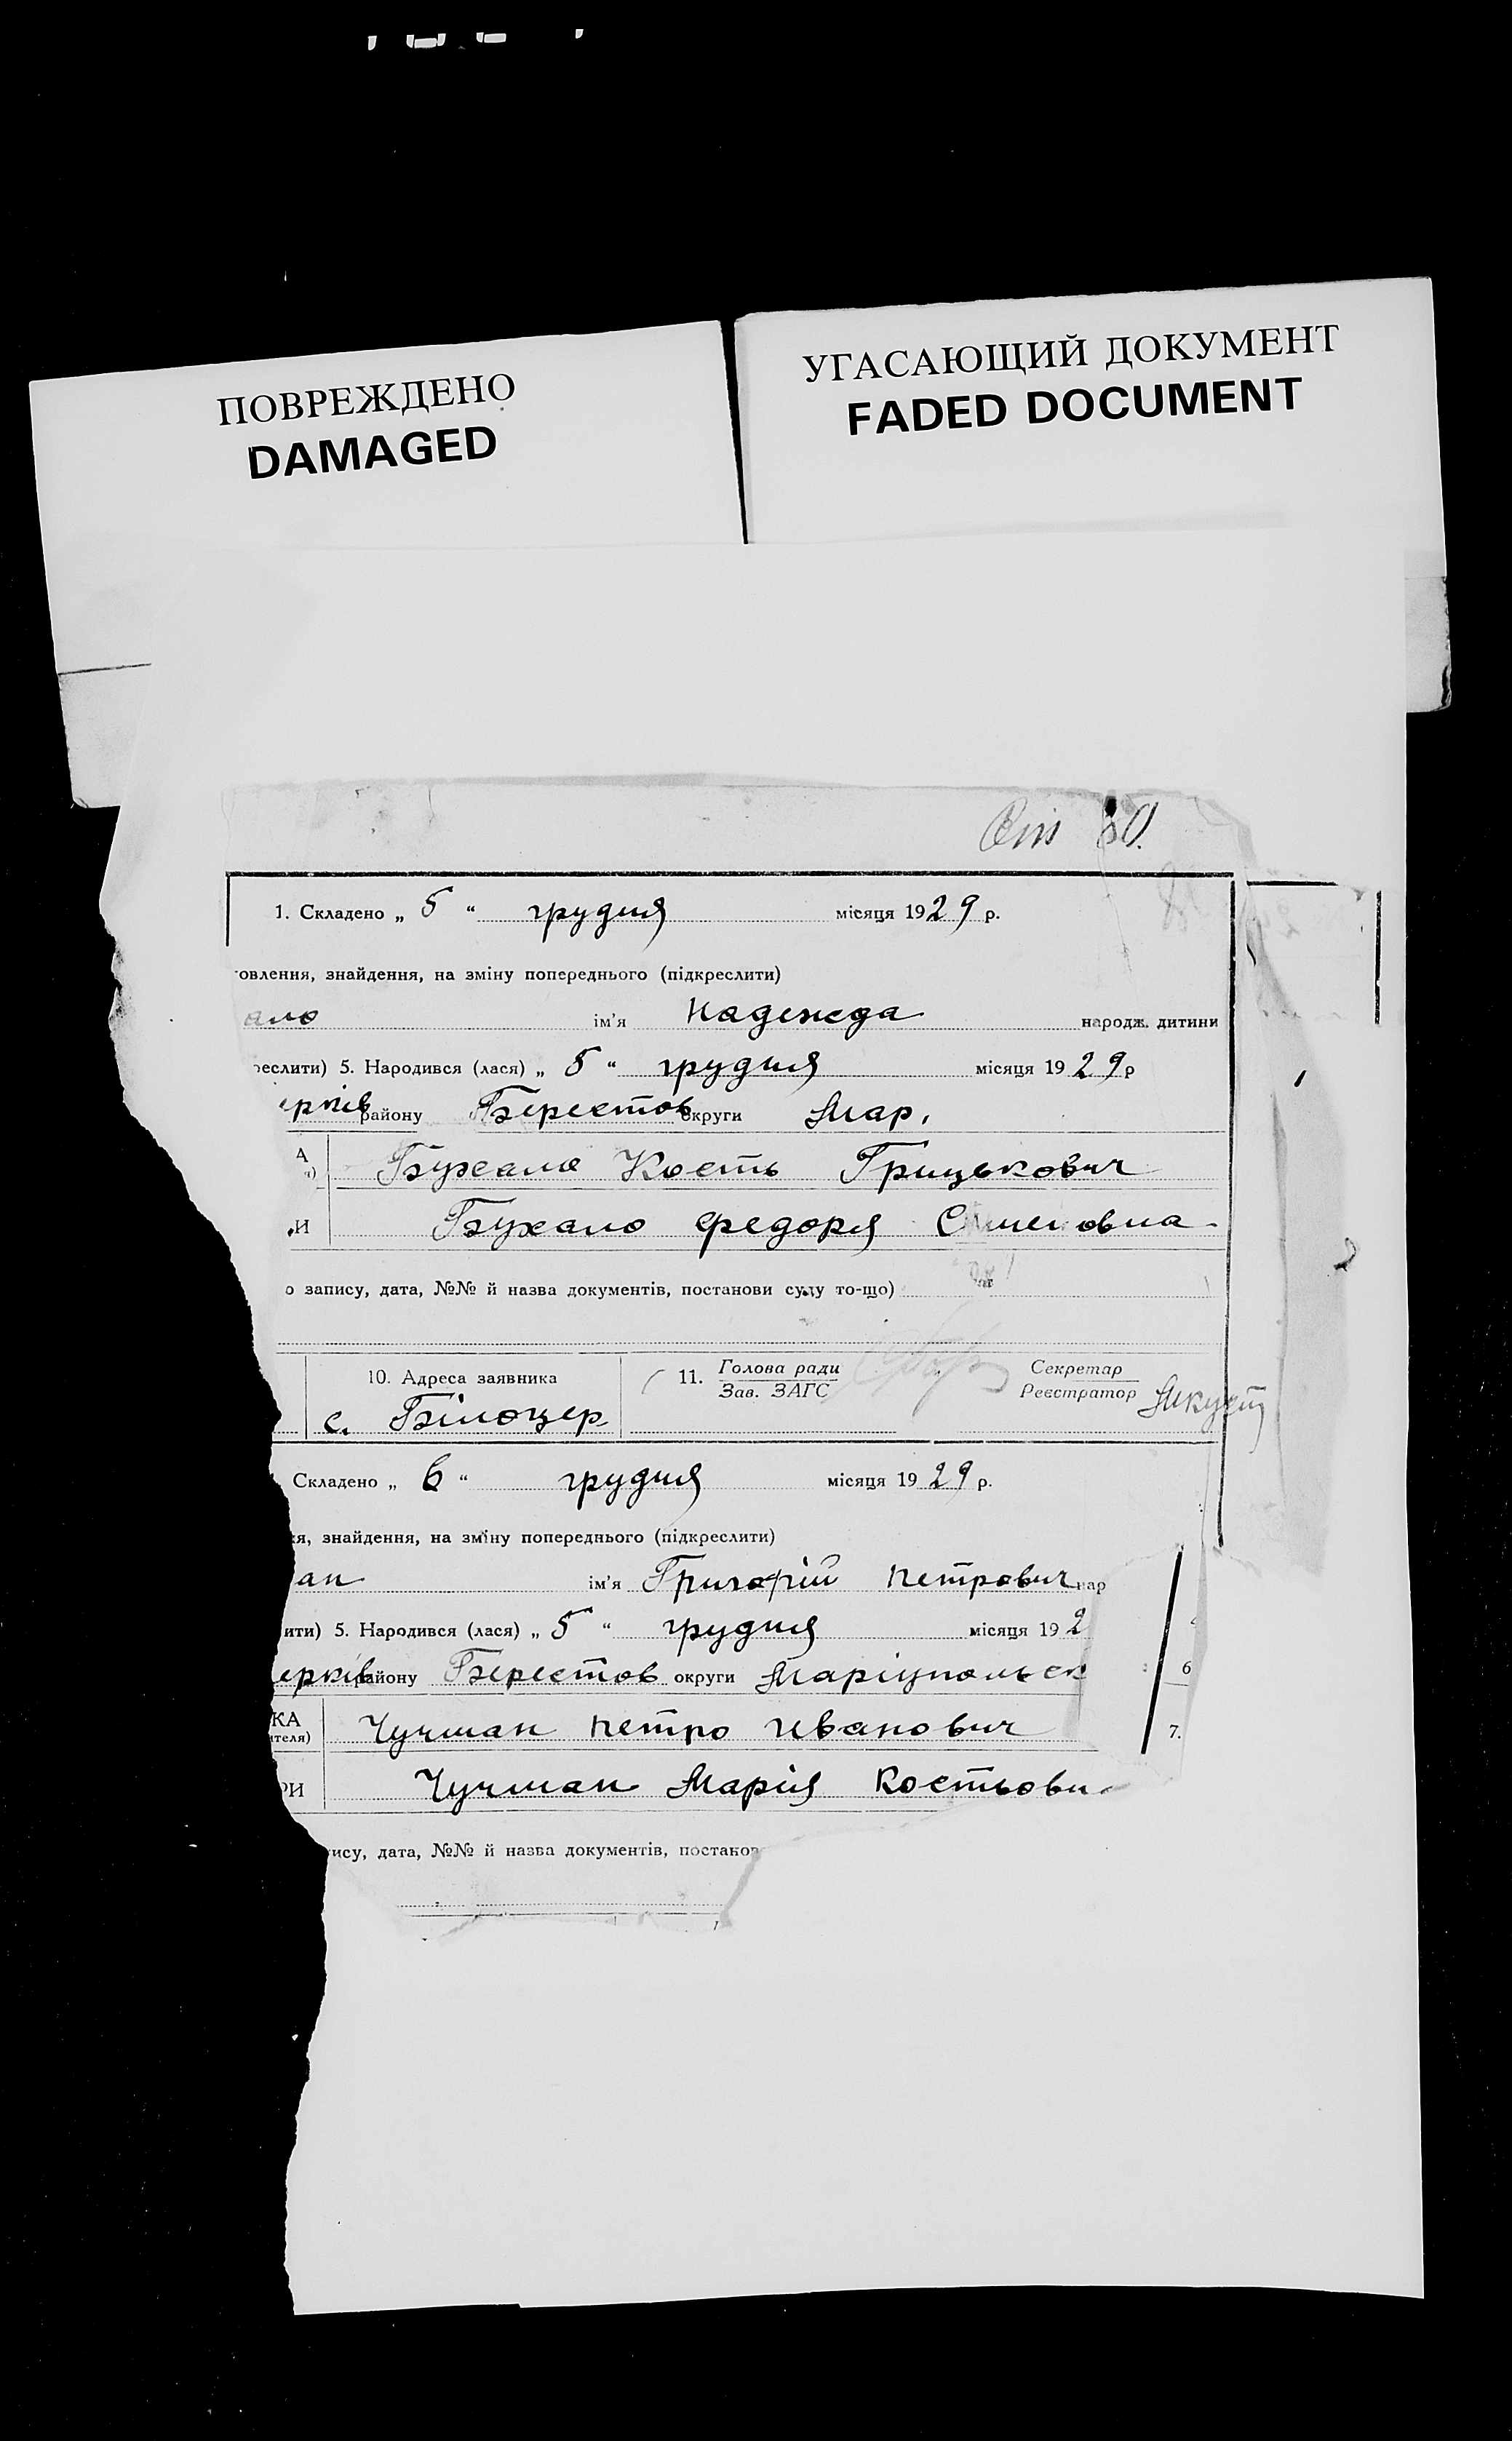 ПОВРЕЖДЕНО
DAMAGED
УГАСАЮЩИЙ ДОКУМЕНТ
FADED DOCUMENT
80.
1. Складено „ 5 “ грудня місяця 1929 р.
овлення, знайдення, на зміну попереднього (підкреслити)
ало ім'я Надежда народж. дитини
реслити) 5. Народився (лася) „ 5 “ грудня місяця 1929 р
ерків району Берестов округи Мар.
А Бухало Кость Грицькович
И Бухало Федора
о запису, дата, №№ й назва документів, постанови суду то-що)
10. Адреса заявника 11. Голова ради Секретар
Зав. ЗАГС Реєстратор
с. Білоцер
Складено „ 6 “ грудня місяця 1929 р.
я, знайдення, на зміну попереднього (підкреслити)
ан ім'я Григорій Петрович нар
ити) 5. Народився (лася) „ 5 “ грудня місяця 192
ерків району Берестов округи Маріупольск
6
КА Чучман Петро Иванович
ителя)
7.
РИ Чучман Марія Костьовн
ису, дата, №№ й назва документів, постанов